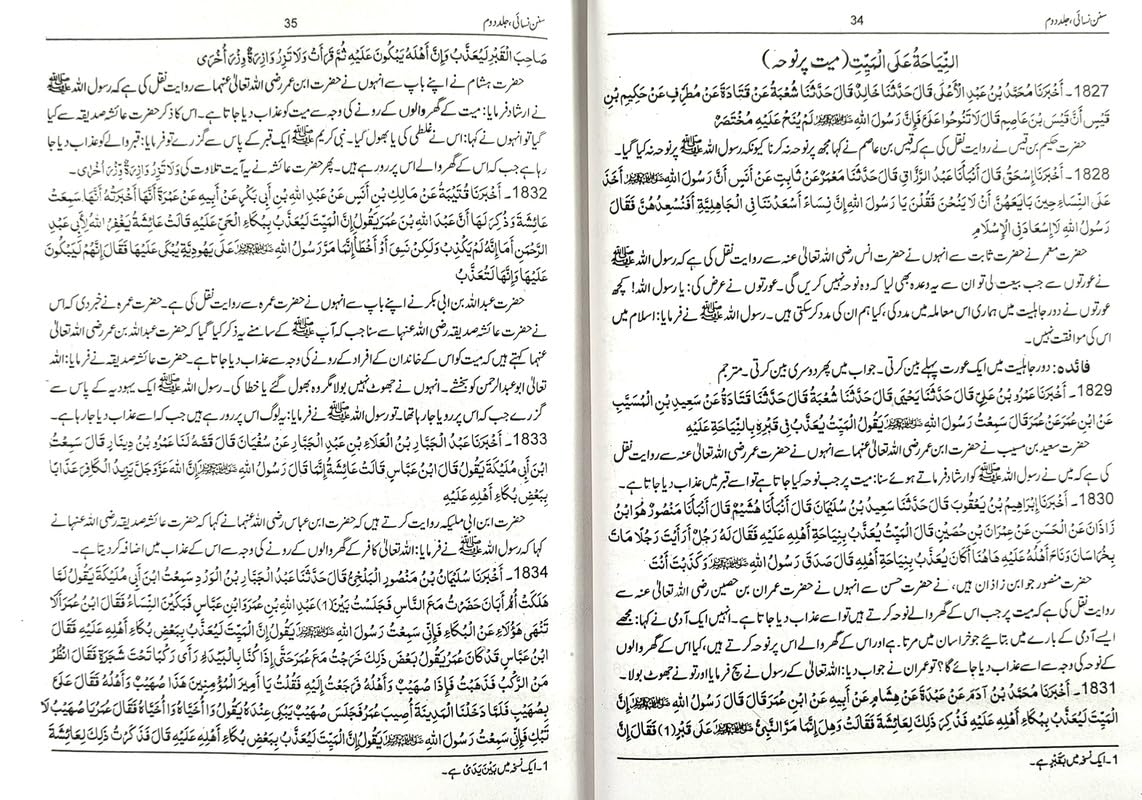 سنن نسائی، جلد دوم
34
اَلنِّيَاحَةُ عَلَى الْمَيِّتِ (میت پر نوحہ)
1827۔ أَخْبَرَنَا مُحَمَّدُ بْنُ عَبْدِ الْأَعْلَى قَالَ حَدَّثَنَا خَالِدٌ قَالَ حَدَّثَنَا شُعْبَةُ عَنْ قَتَادَةَ عَنْ مُطَرِّفٍ عَنْ حَكِيمِ بْنِ
قَيْسٍ أَنَّ قَيْسَ بْنَ عَاصِمٍ قَالَ لَا تَنُوحُوا عَلَيَّ فَإِنَّ رَسُولَ اللهِ ﷺ لَمْ يُنَحْ عَلَيْهِ مُخْتَصَرٌ
حضرت حکیم بن قیس نے روایت نقل کی ہے کہ قیس بن عاصم نے کہا مجھ پر نوحہ نہ کرنا کیونکہ رسول اللہ ﷺ پر نوحہ نہ کیا گیا۔
1828۔ أَخْبَرَنَا إِسْحٰقُ قَالَ أَنْبَأَنَا عَبْدُ الرَّزَّاقِ قَالَ حَدَّثَنَا مَعْمَرٌ عَنْ ثَابِتٍ عَنْ أَنَسٍ أَنَّ رَسُولَ اللهِ ﷺ أَخَذَ
عَلَى النِّسَاءِ حِينَ بَايَعَهُنَّ أَنْ لَا يَنُحْنَ فَقُلْنَ يَا رَسُولَ اللهِ إِنَّ نِسَاءً أَسْعَدْنَنَا فِي الْجَاهِلِيَّةِ أَفَنُسْعِدُهُنَّ فَقَالَ
رَسُولُ اللهِ لَا إِسْعَادَ فِي الْإِسْلَامِ
حضرت معمر نے حضرت ثابت سے انہوں نے حضرت انس رضی اللہ تعالیٰ عنہ سے روایت نقل کی ہے کہ رسول اللہ ﷺ
نے عورتوں سے جب بیعت لی تو ان سے یہ وعدہ بھی لیا کہ وہ نوحہ نہیں کریں گی۔ عورتوں نے عرض کی: یا رسول اللہ! کچھ
عورتوں نے دور جاہلیت میں ہماری اس معاملہ میں مدد کی، کیا ہم ان کی مدد کر سکتی ہیں۔ رسول اللہ ﷺ نے فرمایا: اسلام میں
اس کی موافقت نہیں۔
فائدہ: دور جاہلیت میں ایک عورت پہلے بین کرتی۔ جواب میں پھر دوسری بین کرتی۔ مترجم
1829۔ أَخْبَرَنَا عَمْرُو بْنُ عَلِيٍّ قَالَ حَدَّثَنَا يَحْيَى قَالَ حَدَّثَنَا شُعْبَةُ قَالَ حَدَّثَنَا قَتَادَةُ عَنْ سَعِيدِ بْنِ الْمُسَيَّبِ
عَنِ ابْنِ عُمَرَ عَنْ عُمَرَ قَالَ سَمِعْتُ رَسُولَ اللهِ ﷺ يَقُولُ الْمَيِّتُ يُعَذَّبُ فِي قَبْرِهِ بِالنِّيَاحَةِ عَلَيْهِ
حضرت سعید بن مسیب نے حضرت ابن عمر رضی اللہ تعالیٰ عنہما سے انہوں نے حضرت عمر رضی اللہ تعالیٰ عنہ سے روایت نقل
کی ہے کہ میں نے رسول اللہ ﷺ کو ارشاد فرماتے ہوئے سنا: میت پر جب نوحہ کیا جاتا ہے تو اسے قبر میں عذاب دیا جاتا ہے۔
1830۔ أَخْبَرَنَا إِبْرَاهِيمُ بْنُ يَعْقُوبَ قَالَ حَدَّثَنَا سَعِيدُ بْنُ سُلَيْمَانَ قَالَ أَنْبَأَنَا هُشَيْمٌ قَالَ أَنْبَأَنَا مَنْصُورٌ هُوَ ابْنُ
زَاذَانَ عَنِ الْحَسَنِ عَنْ عِمْرَانَ بْنِ حُصَيْنٍ قَالَ الْمَيِّتُ يُعَذَّبُ بِنِيَاحَةِ أَهْلِهِ عَلَيْهِ فَقَالَ لَهُ رَجُلٌ أَرَأَيْتَ رَجُلًا مَاتَ
بِخُرَاسَانَ وَنَاحَ أَهْلُهُ عَلَيْهِ هَاهُنَا أَكَانَ يُعَذَّبُ بِنِيَاحَةِ أَهْلِهِ قَالَ صَدَقَ رَسُولُ اللهِ ﷺ وَكَذَبْتَ أَنْتَ
حضرت منصور جو ابن زاذان ہیں، نے حضرت حسن سے انہوں نے حضرت عمران بن حصین رضی اللہ تعالیٰ عنہ سے
روایت نقل کی ہے کہ میت پر جب اس کے گھر والے نوحہ کرتے ہیں تو اسے عذاب دیا جاتا ہے۔ انہیں ایک آدمی نے کہا: مجھے
ایسے آدمی کے بارے میں بتائیے جو خراسان میں مرتا ہے اور اس کے گھر والے اس پر نوحہ کرتے ہیں، کیا اس کے گھر والوں
کے نوحہ کی وجہ سے اسے عذاب دیا جائے گا؟ تو عمران نے جواب دیا: اللہ تعالیٰ کے رسول نے سچ فرمایا اور تو نے جھوٹ بولا۔
1831۔ أَخْبَرَنَا مُحَمَّدُ بْنُ آدَمَ عَنْ عَبْدَةَ عَنْ هِشَامٍ عَنْ أَبِيهِ عَنِ ابْنِ عُمَرَ قَالَ قَالَ رَسُولُ اللهِ ﷺ إِنَّ
الْمَيِّتَ لَيُعَذَّبُ بِبُكَاءِ أَهْلِهِ عَلَيْهِ فَذُكِرَ ذَلِكَ لِعَائِشَةَ فَقَالَتْ وَهِلَ إِنَّمَا مَرَّ النَّبِيُّ ﷺ عَلَى قَبْرٍ(1) فَقَالَ إِنَّ
1۔ ایک نسخہ میں بِقَبْرٍ ہے۔
سنن نسائی، جلد دوم
35
صَاحِبَ الْقَبْرِ لَيُعَذَّبُ وَإِنَّ أَهْلَهُ يَبْكُونَ عَلَيْهِ ثُمَّ قَرَأَتْ وَلَا تَزِرُ وَازِرَةٌ وِّزْرَ أُخْرٰى
حضرت ہشام نے اپنے باپ سے انہوں نے حضرت ابن عمر رضی اللہ تعالیٰ عنہما سے روایت نقل کی ہے کہ رسول اللہ ﷺ
نے ارشاد فرمایا: میت کے گھر والوں کے رونے کی وجہ سے میت کو عذاب دیا جاتا ہے۔ اس کا ذکر حضرت عائشہ صدیقہ سے کیا
گیا تو انہوں نے کہا: اس نے غلطی کی یا بھول گیا۔ نبی کریم ﷺ ایک قبر کے پاس سے گزرے تو فرمایا: قبر والے کو عذاب دیا جا
رہا ہے جب کہ اس کے گھر والے اس پر رو رہے ہیں۔ پھر حضرت عائشہ نے یہ آیت تلاوت کی وَلَا تَزِرُ وَازِرَةٌ وِّزْرَ أُخْرٰى۔
1832۔ أَخْبَرَنَا قُتَيْبَةُ عَنْ مَالِكِ بْنِ أَنَسٍ عَنْ عَبْدِ اللهِ بْنِ أَبِي بَكْرٍ عَنْ أَبِيهِ عَنْ عَمْرَةَ أَنَّهَا أَخْبَرَتْهُ أَنَّهَا سَمِعَتْ
عَائِشَةَ وَذُكِرَ لَهَا أَنَّ عَبْدَ اللهِ بْنَ عُمَرَ يَقُولُ إِنَّ الْمَيِّتَ لَيُعَذَّبُ بِبُكَاءِ الْحَيِّ عَلَيْهِ قَالَتْ عَائِشَةُ يَغْفِرُ اللهُ لِأَبِي عَبْدِ
الرَّحْمٰنِ أَمَا إِنَّهُ لَمْ يَكْذِبْ وَلَكِنْ نَسِيَ أَوْ أَخْطَأَ إِنَّمَا مَرَّ رَسُولُ اللهِ ﷺ عَلَى يَهُودِيَّةٍ يُبْكَى عَلَيْهَا فَقَالَ إِنَّهُمْ لَيَبْكُونَ
عَلَيْهَا وَإِنَّهَا لَتُعَذَّبُ
حضرت عبداللہ بن ابی بکر نے اپنے باپ سے انہوں نے حضرت عمرہ سے روایت نقل کی ہے۔ حضرت عمرہ نے خبر دی کہ اس
نے حضرت عائشہ صدیقہ رضی اللہ عنہا سے سنا جب کہ آپ ﷺ کے سامنے یہ ذکر کیا گیا کہ حضرت عبداللہ بن عمر رضی اللہ تعالیٰ
عنہما کہتے ہیں کہ میت کو اس کے خاندان کے افراد کے رونے کی وجہ سے عذاب دیا جاتا ہے۔ حضرت عائشہ صدیقہ نے فرمایا: اللہ
تعالیٰ ابو عبدالرحمن کو بخشے۔ انہوں نے جھوٹ نہیں بولا مگر وہ بھول گئے یا خطا کی۔ رسول اللہ ﷺ ایک یہودیہ کے پاس سے
گزرے جب کہ اس پر رویا جا رہا تھا۔ تو رسول اللہ ﷺ نے فرمایا: یہ لوگ اس پر رو رہے ہیں جب کہ اسے عذاب دیا جا رہا ہے۔
1833۔ أَخْبَرَنَا عَبْدُ الْجَبَّارِ بْنُ الْعَلَاءِ بْنِ عَبْدِ الْجَبَّارِ عَنْ سُفْيَانَ قَالَ قَصَّهُ لَنَا عَمْرُو بْنُ دِينَارٍ قَالَ سَمِعْتُ
ابْنَ أَبِي مُلَيْكَةَ يَقُولُ قَالَ ابْنُ عَبَّاسٍ قَالَتْ عَائِشَةُ إِنَّمَا قَالَ رَسُولُ اللهِ ﷺ إِنَّ اللهَ عَزَّ وَجَلَّ يَزِيدُ الْكَافِرَ عَذَابًا
بِبَعْضِ بُكَاءِ أَهْلِهِ عَلَيْهِ
حضرت ابن ابی ملیکہ روایت کرتے ہیں کہ حضرت ابن عباس رضی اللہ عنہما نے کہا کہ حضرت عائشہ صدیقہ رضی اللہ عنہا نے
کہا کہ رسول اللہ ﷺ نے فرمایا: اللہ تعالیٰ کافر کے گھر والوں کے رونے کی وجہ سے اس کے عذاب میں اضافہ کر دیتا ہے۔
1834۔ أَخْبَرَنَا سُلَيْمَانُ بْنُ مَنْصُورٍ الْبَلْخِيُّ قَالَ حَدَّثَنَا عَبْدُ الْجَبَّارِ بْنُ الْوَرْدِ سَمِعْتُ ابْنَ أَبِي مُلَيْكَةَ يَقُولُ لَمَّا
هَلَكَتْ أُمُّ أَبَانَ حَضَرْتُ مَعَ النَّاسِ فَجَلَسْتُ بَيْنَ(1) عَبْدِ اللهِ بْنِ عُمَرَ وَابْنِ عَبَّاسٍ فَبَكَيْنَ النِّسَاءُ فَقَالَ ابْنُ عُمَرَ أَلَا
تَنْهَى هَؤُلَاءِ عَنِ الْبُكَاءِ فَإِنِّي سَمِعْتُ رَسُولَ اللهِ ﷺ يَقُولُ إِنَّ الْمَيِّتَ لَيُعَذَّبُ بِبَعْضِ بُكَاءِ أَهْلِهِ عَلَيْهِ فَقَالَ
ابْنُ عَبَّاسٍ قَدْ كَانَ عُمَرُ يَقُولُ بَعْضَ ذَلِكَ خَرَجْتُ مَعَ عُمَرَ حَتَّى إِذَا كُنَّا بِالْبَيْدَاءِ رَأَى رَكْبًا تَحْتَ شَجَرَةٍ فَقَالَ انْظُرْ
مَنِ الرَّكْبُ فَذَهَبْتُ فَإِذَا صُهَيْبٌ وَأَهْلُهُ فَرَجَعْتُ إِلَيْهِ فَقُلْتُ يَا أَمِيرَ الْمُؤْمِنِينَ هَذَا صُهَيْبٌ وَأَهْلُهُ فَقَالَ عَلَيَّ
بِصُهَيْبٍ فَلَمَّا دَخَلْنَا الْمَدِينَةَ أُصِيبَ عُمَرُ فَجَلَسَ صُهَيْبٌ يَبْكِي عِنْدَهُ يَقُولُ وَا أُخَيَّاهُ وَا أُخَيَّاهُ فَقَالَ عُمَرُ يَا صُهَيْبُ لَا
تَبْكِ فَإِنِّي سَمِعْتُ رَسُولَ اللهِ ﷺ يَقُولُ إِنَّ الْمَيِّتَ لَيُعَذَّبُ بِبَعْضِ بُكَاءِ أَهْلِهِ عَلَيْهِ قَالَ فَذَكَرْتُ ذَلِكَ لِعَائِشَةَ
1۔ ایک نسخہ میں بَيْنَ يَدَيْ ہے۔